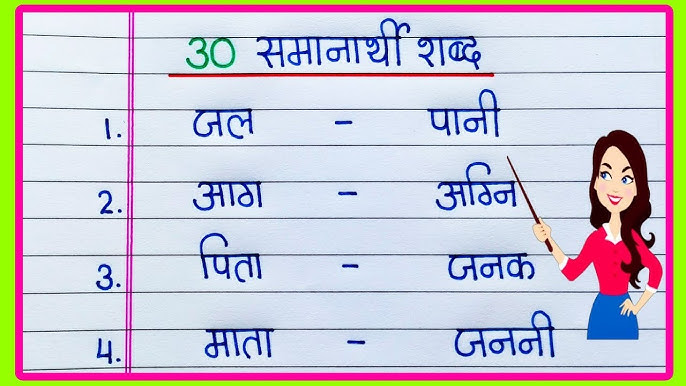 30 समानार्थी शब्द
1. जल - पानी
2. आग - अग्नि
3. पिता - जनक
4. माता - जननी